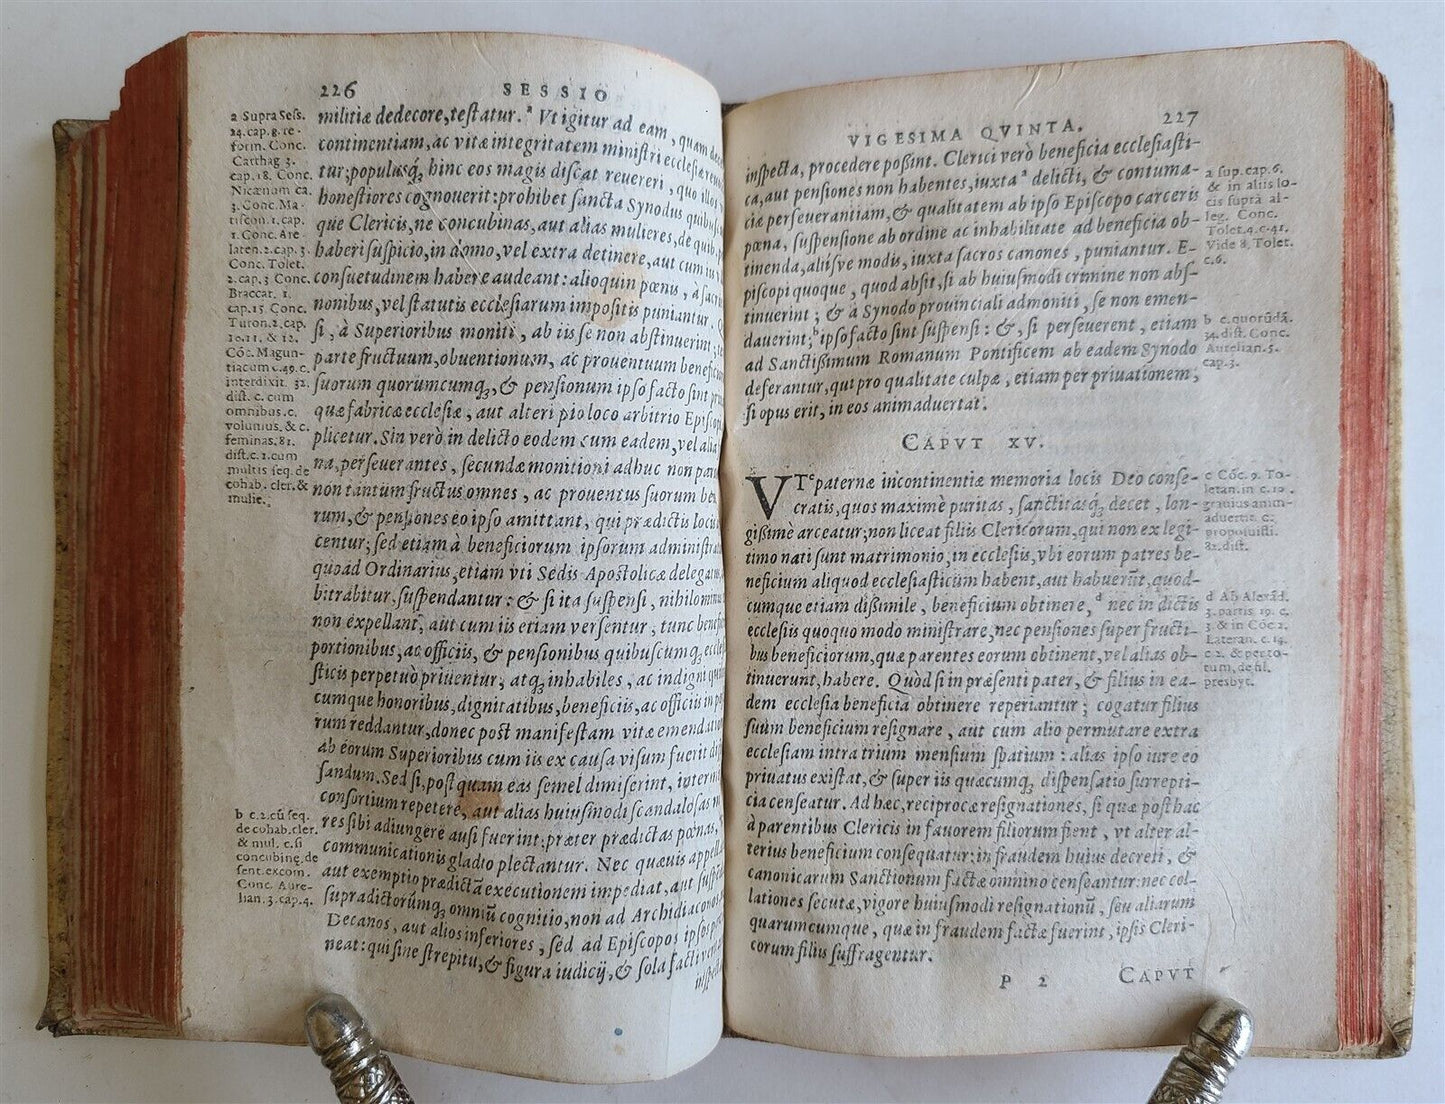 226 SESSIO
a Supra Sess.
24. cap. 8. re-
form. Conc.
Carthag 3.
cap. 18. Conc.
Nicænum ca.
3. Conc. Ma-
tiscon. 1. cap.
1. Conc. Are-
laten. 2. cap. 3
Conc. Tolet.
2. cap. 3 Conc.
Braccar. 1.
cap. 15. Conc.
Turon. 2. cap.
10. 11. & 12.
Cōc. Magun-
tiacum c. 49. c.
interdixit. 32.
dist. c. cum
omnibus. c.
volumus. & c.
feminas. 81.
dist. c. 1. cum
multis seq. de
cohab. cler. &
mulie.
b c. 2. cū seq.
de cohab. cler.
& mul. c. si
concubinę. de
sent. excom.
Conc. Aure-
lian. 3. cap. 4.
militiæ dedecore, testatur. a Vt igitur ad eam, quam
continentiam, ac vitæ integritatem ministri ecclesiæ
tur; populusq́; hinc eos magis discat reuereri, quo illos
honestiores cognouerit: prohibet sancta Synodus
que Clericis, ne concubinas, aut alias mulieres, de
haberi suspicio, in domo, vel extra detinere, aut cum
consuetudinem habere audeant: alioquin pœnis, à
nonibus, vel statutis ecclesiarum impositis puniantur.
si, à Superioribus moniti, ab iis se non abstinuerint;
parte fructuum, obuentionum, ac prouentuum
suorum quorumcumq;, & pensionum ipso facto sint
quæ fabricæ ecclesiæ, aut alteri pio loco arbitrio
plicetur. Sin verò in delicto eodem cum eadem, vel alia
na, perseuerantes, secundæ monitioni adhuc non
non tantum fructus omnes, ac prouentus suorum
rum, & pensiones eo ipso amittant, qui prædictis locis
centur; sed etiam à beneficiorum ipsorum
quoad Ordinarius, etiam vti Sedis Apostolicæ
bitrabitur, suspendantur: & si ita suspensi,
non expellant, aut cum iis etiam versentur, tunc
portionibus, ac officiis, & pensionibus quibuscumq;
sticis perpetuò priuentur, atq; inhabiles, ac indigni
cumque honoribus, dignitatibus, beneficiis, ac officiis in
rum reddantur, donec post manifestam vitæ
ab eorum Superioribus cum iis ex causa visum fuerit
sandum. Sed si, postquam eas semel dimiserint,
consortium repetere, aut alias huiusmodi scandalosas
res sibi adiungere ausi fuerint: præter prædictas pœnas,
communicationis gladio plectantur. Nec quæuis
aut exemptio prædictā executionem impediat, aut
supradictorúmq; omniū cognitio, non ad
Decanos, aut alios inferiores, sed ad Episcopos ipsos
neat: qui sine strepitu, & figura iudicij, & sola facti
227
VIGESIMA QVINTA.
inspecta, procedere possint. Clerici verò beneficia ecclesiasti-
ca, aut pensiones non habentes, iuxta a delicti, & contuma-
ciæ perseuerantiam, & qualitatem ab ipso Episcopo carceris
pœna, suspensione ab ordine ac inhabilitate ad beneficia ob-
tinenda, aliísve modis, iuxta sacros canones, puniantur. E-
piscopi quoque, quod absit, si ab huiusmodi crimine non abs-
tinuerint; & à Synodo prouinciali admoniti, se non emen-
dauerint; b ipso facto sint suspensi: &, si perseuerent, etiam
ad Sanctissimum Romanum Pontificem ab eadem Synodo
deferantur, qui pro qualitate culpæ, etiam per priuationem,
si opus erit, in eos animaduertat.
CAPVT XV.
VT c paternæ incontinentiæ memoria locis Deo conse-
cratis, quos maximè puritas, sanctitasq́; decet, lon-
gissimè arceatur; non liceat filiis Clericorum, qui non ex legi-
timo nati sunt matrimonio, in ecclesiis, vbi eorum patres be-
neficium aliquod ecclesiasticum habent, aut habuerūt, quod-
cumque etiam dissimile, beneficium obtinere, d nec in dictis
ecclesiis quoquo modo ministrare, nec pensiones super fructi-
bus beneficiorum, quæ parentes eorum obtinent, vel alias ob-
tinuerunt, habere. Quòd si in præsenti pater, & filius in ea-
dem ecclesia beneficia obtinere reperiantur; cogatur filius
suum beneficium resignare, aut cum alio permutare extra
ecclesiam intra trium mensium spatium: alias ipso iure eo
priuatus existat, & super iis quæcumq; dispensatio surrepti-
cia censeatur. Ad hæc, reciprocæ resignationes, si quæ post hac
à parentibus Clericis in fauorem filiorum fient, vt alter al-
terius beneficium consequatur: in fraudem huius decreti, &
canonicarum Sanctionum factæ omnino censeantur: nec col-
lationes secutæ, vigore huiusmodi resignationū, seu aliarum
quarumcumque, quæ in fraudem factæ fuerint, ipsis Cleri-
corum filiis suffragentur.
P 2 CAPVT
a sup. cap. 6.
& in aliis lo-
cis suprà al-
leg. Conc.
Tolet. 4. c. 41.
Vide 8. Tolet.
c. 6.
b c. quorūdā.
34. dist. Conc.
Aurelian. 5.
cap. 3.
c Cōc. 9. To-
letan. in c. 10.
grauius anim-
aduertit. c.
proposuisti.
82. dist.
d Ab Alexād.
3. partis 19. c.
3. & in Cōc 2.
Lateran. c. 14.
c. 2. & per to-
tum, de fil.
presbyt.